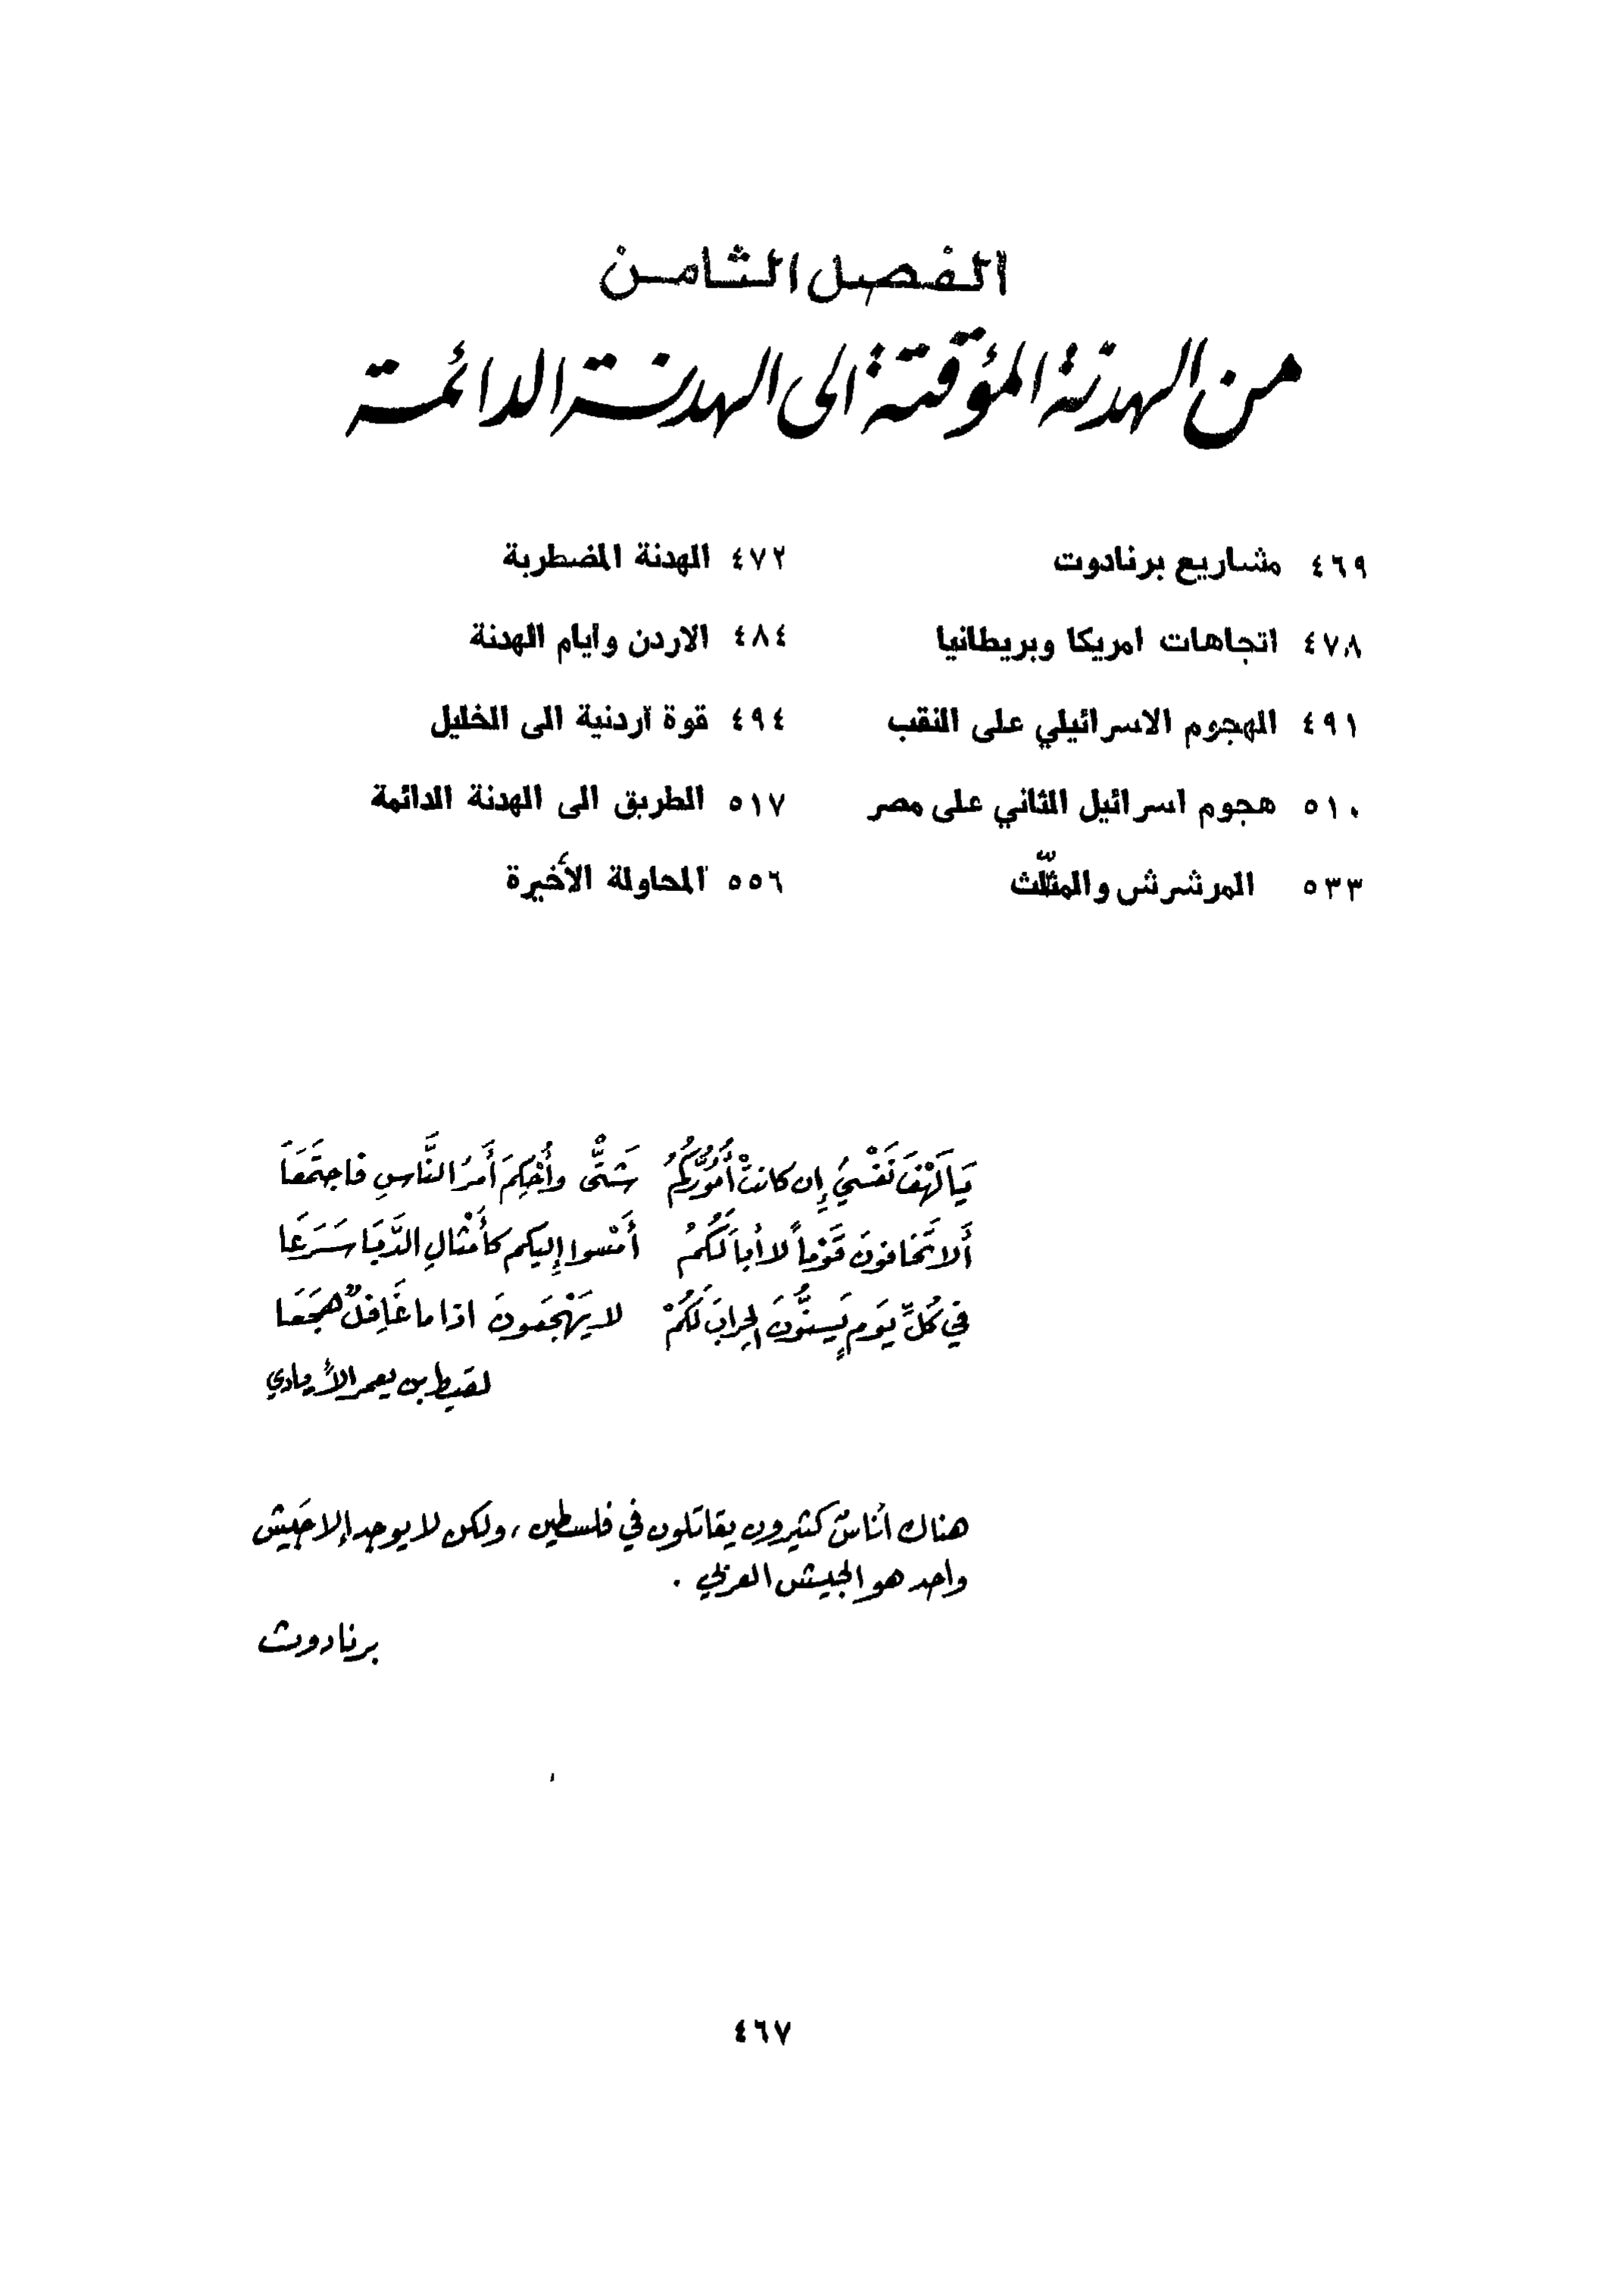 الفصل الثامن
من الهدنة المؤقتة الى الهدنة الدائمة
٤٦٩ مشاريع برنادوت
٤٧٢ الهدنة المضطربة
٤٧٨ اتجاهات امريكا وبريطانيا
٤٨٤ الاردن وأيام الهدنة
٤٩١ الهجوم الاسرائيلي على النقب
٤٩٤ قوة أردنية الى الخليل
٥١٠ هجوم اسرائيل الثاني على مصر
٥١٧ الطريق الى الهدنة الدائمة
٥٣٣ المرشرش والمثلّث
٥٥٦ المحاولة الأخيرة
يَا لَهْفَ نَفْسِيَ إِن كانتْ أُمُورُكُمُ شَتَّى وأُحْكِمَ أَمرُ النَّاسِ فاجتَمَعَا
أَلا تَخَافونَ قَوْماً لا أبا لَكُمُ أَمْسوا إليكم كأَمْثالِ الدَّبَا سَرَعَا
في كُلِّ يَومٍ يَسنُّونَ الحِرابَ لَكُمْ لا يَهْجَعونَ اذا ما غَافِلٌ هَجَعَا
لقيط بن يعمر الأيادي
هناك أناسٌ كثيرون يقاتلون في فلسطين ، ولكن لا يوجد إلا جَيش
واحد هو الجيش العربي .
برنادوت
٤٦٧